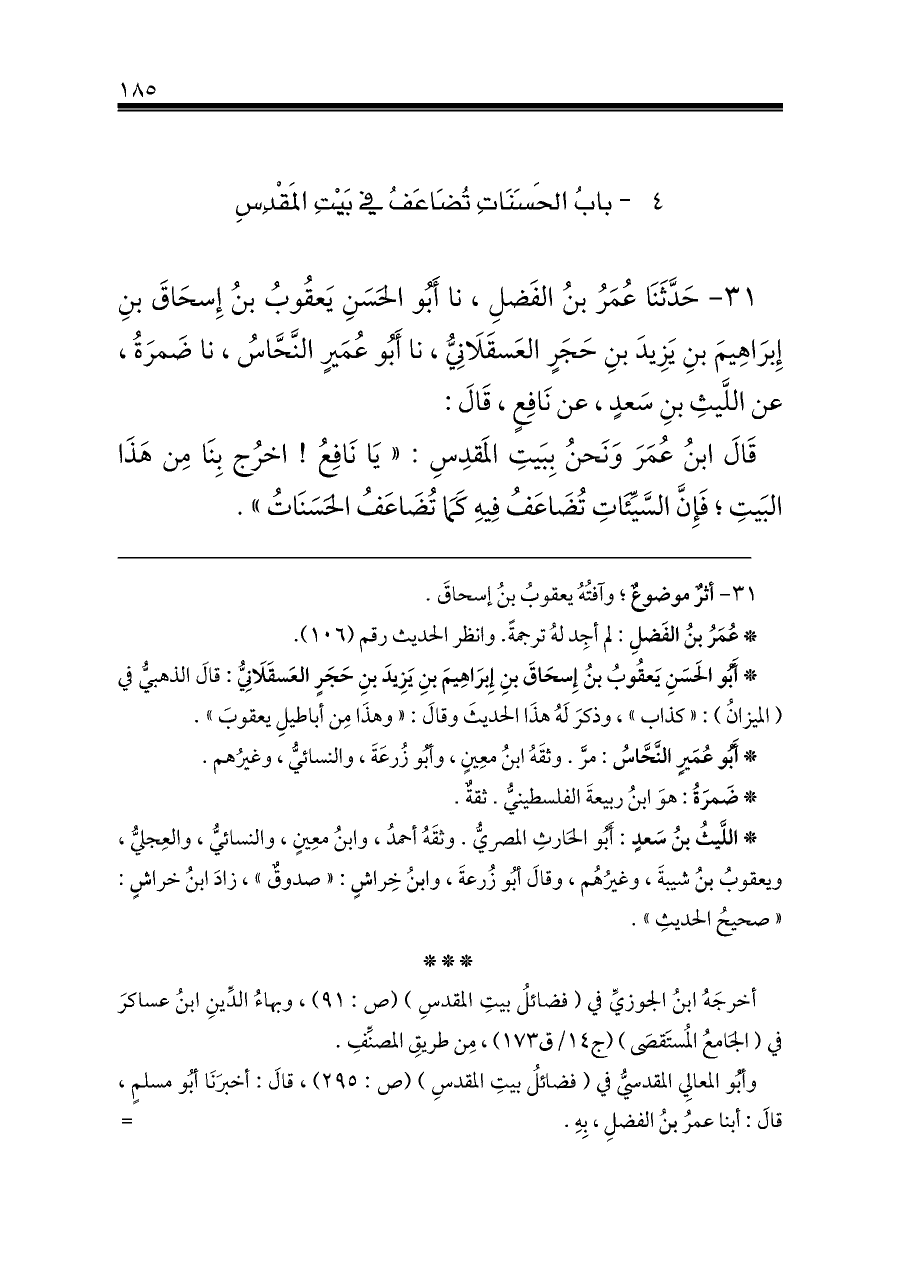 ١٨٥
٤ - بابُ الحَسَنَاتِ تُضَاعَفُ فِي بَيْتِ المَقْدِسِ
٣١- حَدَّثَنَا عُمَرُ بنُ الفَضلِ ، نا أَبُو الحَسَنِ يَعقُوبُ بنُ إِسحَاقَ بنِ
إِبرَاهِيمَ بنِ يَزِيدَ بنِ حَجَرٍ العَسقَلَانِيُّ ، نا أَبُو عُمَيرٍ النَّحَّاسُ ، نا ضَمرَةُ ،
عن اللَّيثِ بنِ سَعدٍ ، عن نَافِعٍ ، قَالَ :
قَالَ ابنُ عُمَرَ وَنَحنُ بِبَيتِ المَقدِسِ : « يَا نَافِعُ ! اخرُج بِنَا مِن هَذَا
البَيتِ ؛ فَإِنَّ السَّيِّئَاتِ تُضَاعَفُ فِيهِ كَمَا تُضَاعَفُ الحَسَنَاتُ » .
٣١- أثرٌ موضوعٌ ؛ وآفتُهُ يعقوبُ بنُ إسحاقَ .
* عُمَرُ بنُ الفَضلِ : لم أجِد لهُ ترجمةً. وانظر الحديث رقم (١٠٦).
* أَبُو الحَسَنِ يَعقُوبُ بنُ إِسحَاقَ بنِ إِبرَاهِيمَ بنِ يَزِيدَ بنِ حَجَرٍ العَسقَلَانِيُّ : قالَ الذهبيُّ في
( الميزانُ ) : « كذاب » ، وذكرَ لَهُ هذَا الحديثَ وقالَ : « وهذَا مِن أباطيلِ يعقوبَ » .
* أَبُو عُمَيرٍ النَّحَّاسُ : مرَّ . وثقَهُ ابنُ معِينٍ ، وأبُو زُرعَةَ ، والنسائيُّ ، وغيرُهم .
* ضَمرَةُ : هوَ ابنُ ربيعةَ الفلسطينيُّ . ثقةٌ .
* اللَّيثُ بنُ سَعدٍ : أَبُو الحَارثِ المصريُّ . وثقَهُ أحمدُ ، وابنُ معينٍ ، والنسائيُّ ، والعِجليُّ ،
ويعقوبُ بنُ شيبةَ ، وغيرُهُم ، وقالَ أبُو زُرعةَ ، وابنُ خِراشٍ : « صدوقٌ » ، زادَ ابنُ خراشٍ :
« صحيحُ الحديثِ » .
* * *
أخرجَهُ ابنُ الجوزيِّ في ( فضائلُ بيتِ المقدسِ ) (ص : ٩١) ، وبهاءُ الدِّينِ ابنُ عساكرَ
في ( الجَامعُ المُستَقصَى ) (ج١٤/ ق١٧٣) ، مِن طريقِ المصنِّفِ .
وأبُو المعالِي المقدسيُّ في ( فضائلُ بيتِ المقدسِ ) (ص : ٢٩٥) ، قالَ : أخبرَنَا أبُو مسلمٍ ،
قالَ : أبنا عمرُ بنُ الفضلِ ، بِهِ . =